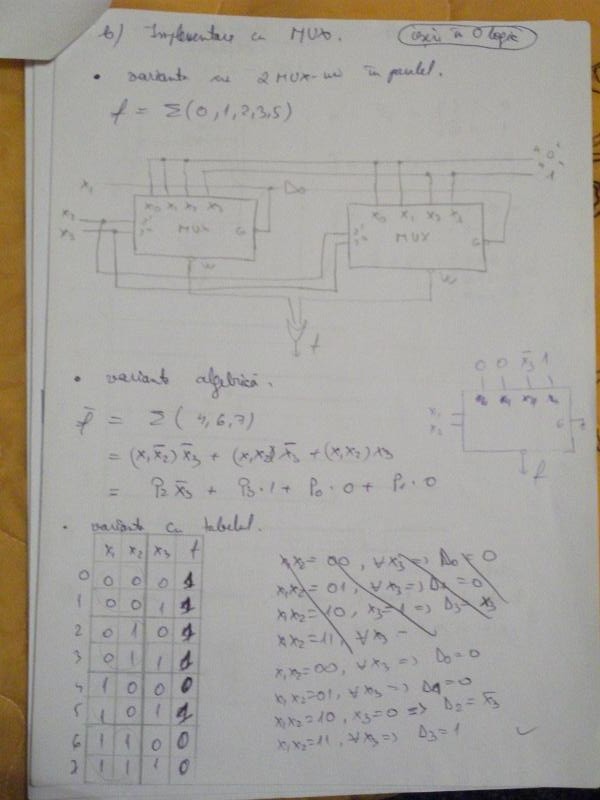 b) Implementare cu MUX. ieșiri în 0 logic
• varianta cu 2 MUX-uri în paralel.
f = Σ(0,1,2,3,5)
"0"
"1"
x₁
x₀ x₁ x₂ x₃
x₂
x₃
MUX G
W
x₀ x₁
MUX G
W
f
• varianta algebrică.
0 0 x̄₃ 1
x₁
G
f
f̄ = Σ( 4,6,7)
= (x₁x̄₂)x̄₃ + (x₁x₂)x̄₃ + (x₁x₂)x₃
= P₂x̄₃ + P₃·1 + P₀·0 + P₁·0
• varianta cu tabelul.
x₁ x₂ x₃ f
0 0 0 0 1
1 0 0 1 1
2 0 1 0 1
3 0 1 1 1
4 1 0 0 0
5 1 0 1 1
6 1 1 0 0
7 1 1 1 0
x₁x₂=00, ∀x₃ => D₀ = 0
x₁x₂=01, ∀x₃ => = 0
x₁x₂=10, x₃=1 => D₃ = x₃
x₁x₂=11, ∀x₃ –
x₁x₂=00, ∀x₃ => D₀=0
x₁x₂=01, ∀x₃ => D₁=0
x₁x₂=10, x₃=0 => D₂=x̄₃
x₁x₂=11, ∀x₃ => D₃=1